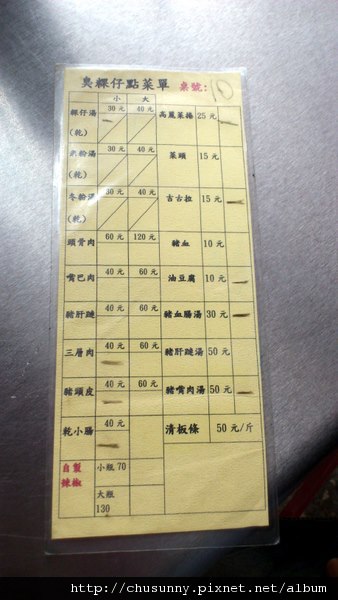 臭粿仔點菜單 桌號：10
小 大
粿仔湯(乾) 30元 40元 高麗菜捲 25元
米粉湯(乾) 30元 40元 菜頭 15元
冬粉湯(乾) 30元 40元 吉古拉 15元
頭骨肉 60元 120元 豬血 10元
嘴巴肉 40元 60元 油豆腐 10元
豬肝連 40元 60元 豬血腸湯 30元
三層肉 40元 60元 豬肝連湯 50元
豬頭皮 40元 60元 豬嘴肉湯 50元
乾小腸 40元 清板條 50元/斤
自製辣椒 小瓶70
大瓶130
http://chusunny.pixnet.net/album